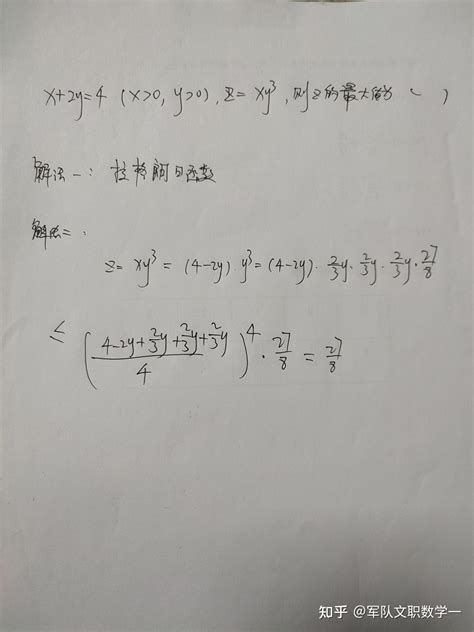 x+2y=4 (x>0, y>0), z= xy³, 则z的最大值为 ( )
解法一: 拉格朗日函数
解法二:
z= xy³ = (4-2y)·y³=(4-2y)·2/3y·2/3y·2/3y·27/8
≤ ((4-2y+2/3y+2/3y+2/3y)/4)⁴·27/8=27/8
知乎 @军队文职数学一